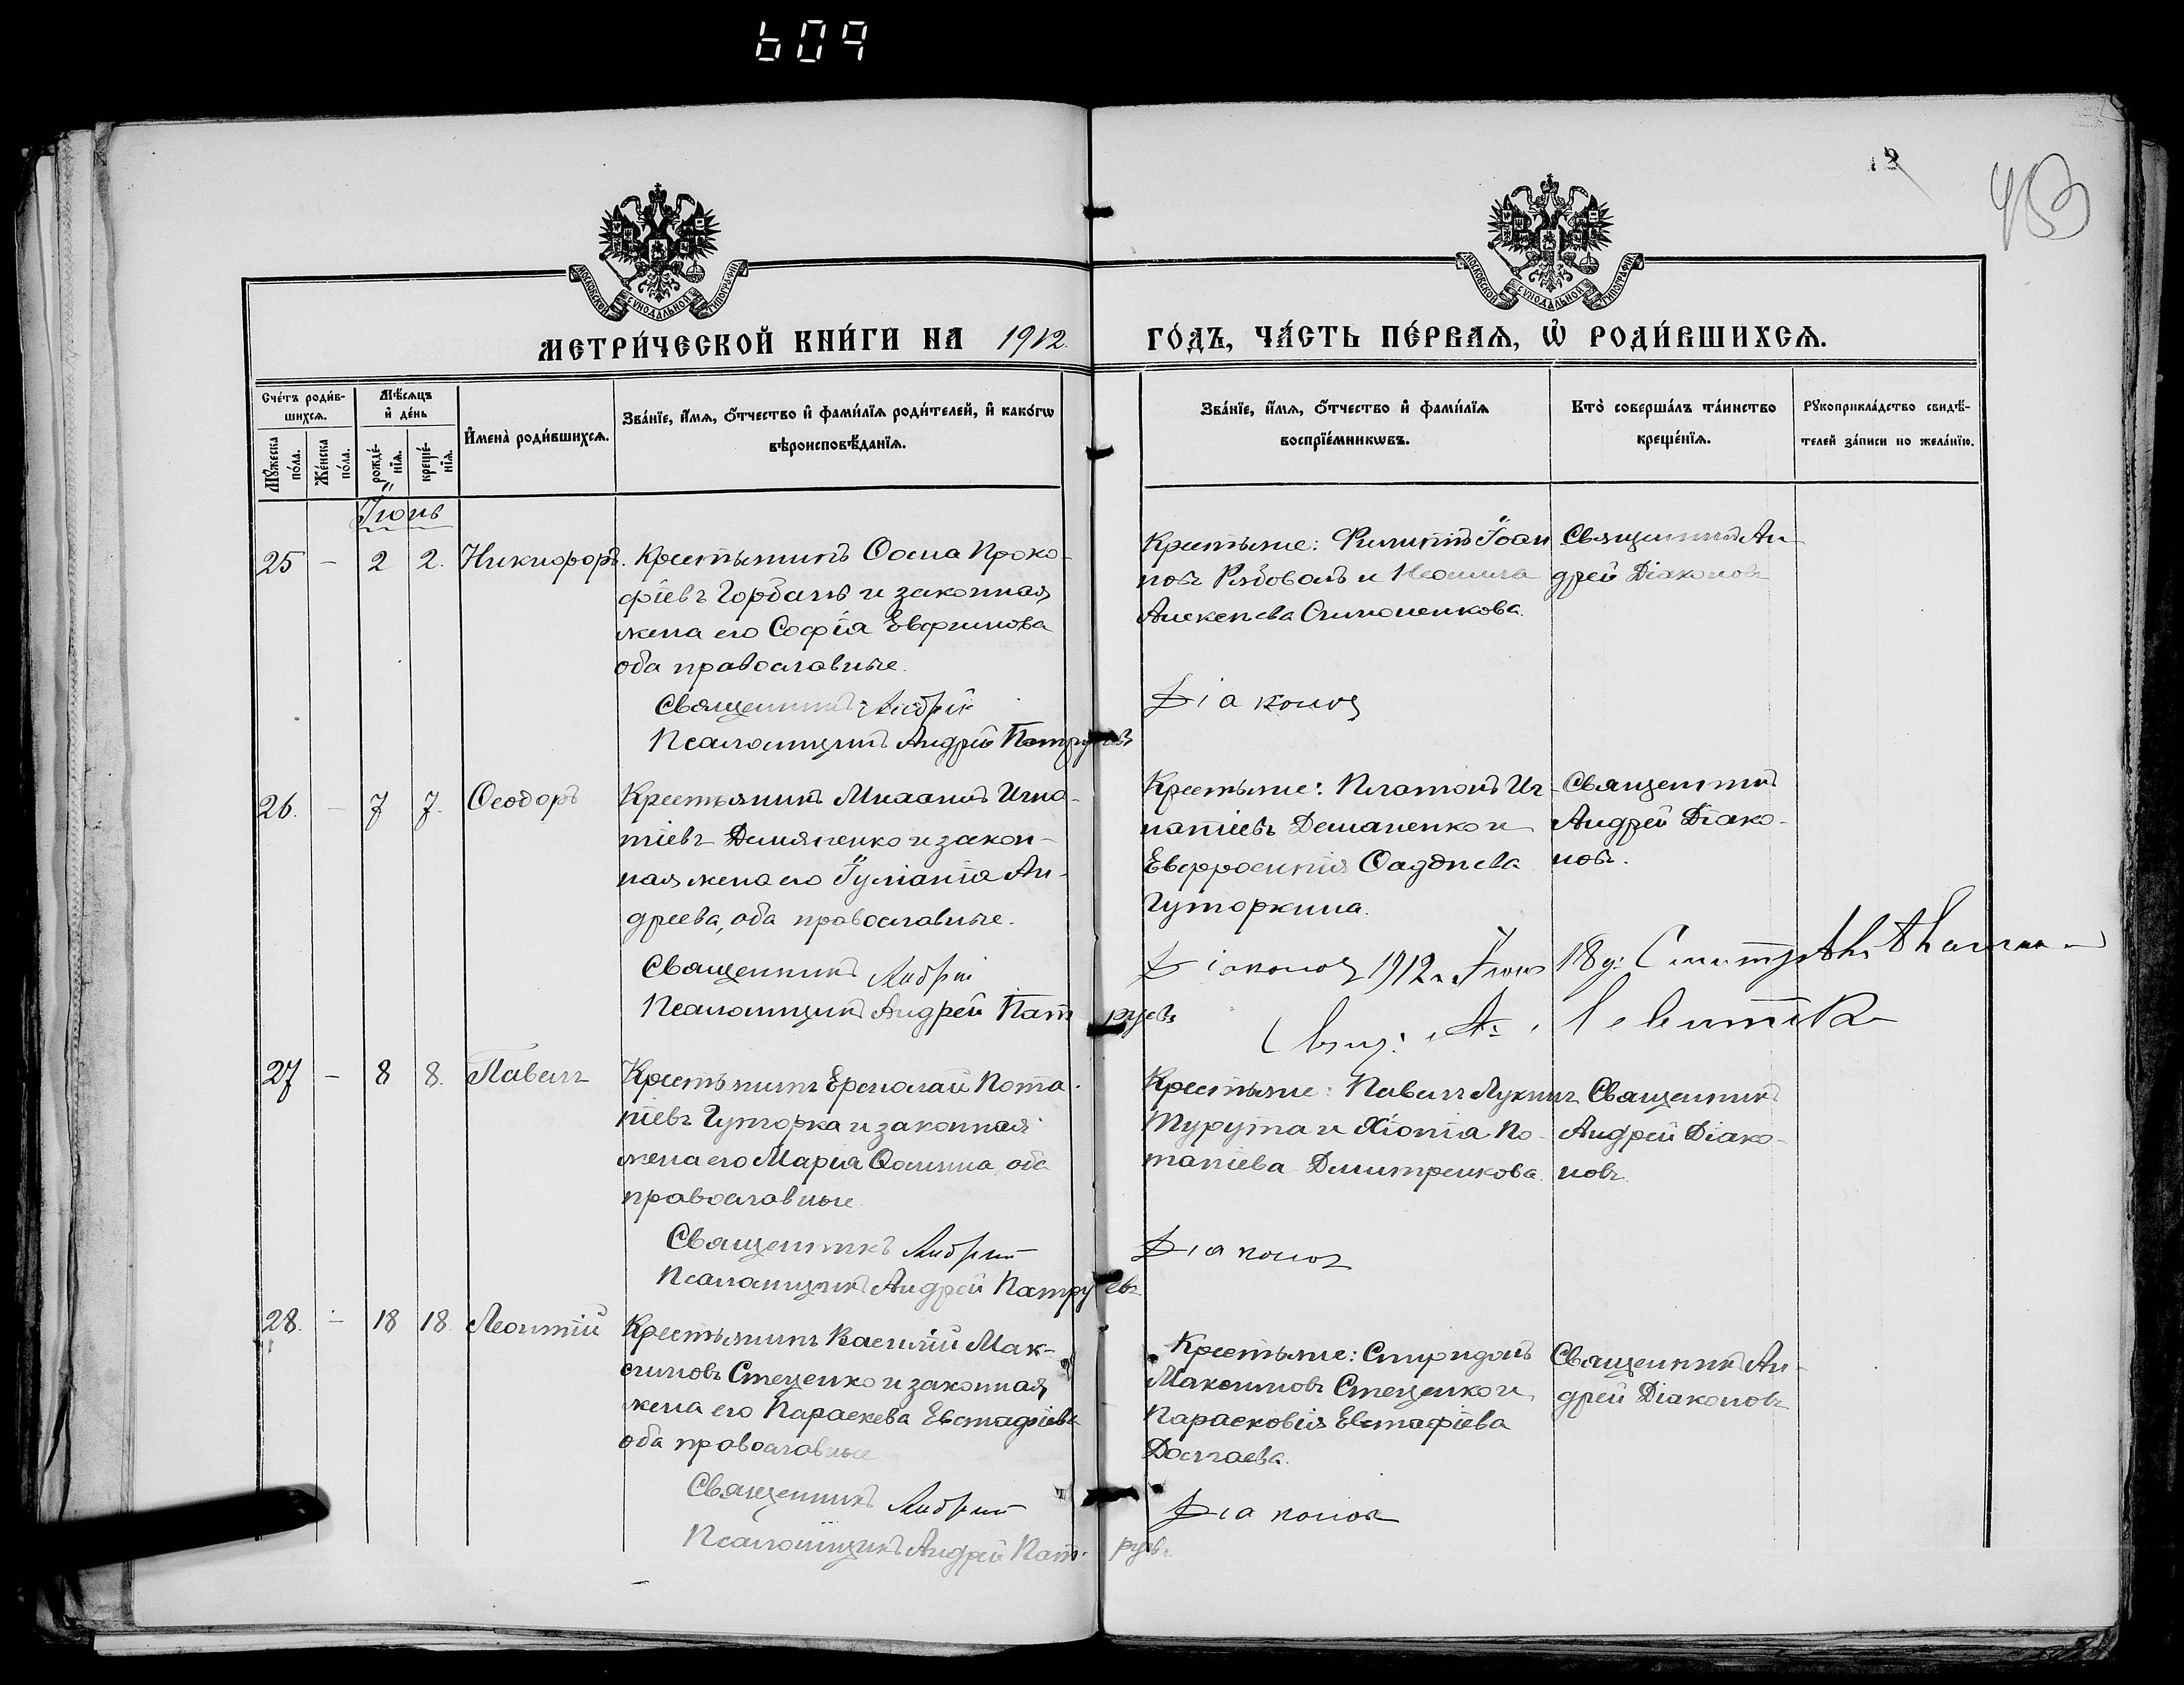 609
12
МОСКОВСКОЙ СѴНОДАЛЬНОЙ ТИПОГРАФІИ
МОСКОВСКОЙ СѴНОДАЛЬНОЙ ТИПОГРАФІИ
МЕТРИ́ЧЕСКОЙ КНИ́ГИ НА 1912. ГО́ДЪ, ЧА́СТЬ ПЕ́РВАѦ, Ѡ҆ РОДИ́ВШИХСѦ.
Сче́тъ роди́в-
шихсѧ.
Мѣ́сѧцъ
и҆ де́нь
Мꙋ́жеска
по́ла.
Же́нска
по́ла.
рожде́-
нїѧ.
креще́-
нїѧ.
И҆мена̀ роди́вшихсѧ.
Зва́нїе, и҆́мѧ, ѻ҆́тчество и҆ фамі́лїѧ роди́телей, и҆ како́гѡ
вѣроисповѣ́данїѧ.
Зва́нїе, и҆́мѧ, ѻ҆́тчество и҆ фамі́лїѧ
воспрїе́мникѡвъ.
Кто̀ соверша́лъ та́инство
креще́нїѧ.
Рꙋкоприкла́дство свидѣ́-
телей за́писи по жела́нїю.
Іюнь
25 – 2 2. Никифоръ.
Крестьянинъ Ѳома Проко-
фіевъ Горбань и законная
жена его Софія Евфимова
оба православные.
Священникъ Андрей
Псаломщикъ Андрей Патруевъ
Крестьяне: Филиппъ Іоан
новъ Рябоволъ и
Алексѣева Симоненкова.
Діаконов
Священникъ Ан-
дрей Діаконовъ
26. – 7 7. Ѳеодоръ
Крестьянинъ Михаилъ Игна-
тіевъ Демяненко и закон-
ная жена его Іуліанія Ан-
дреева, оба православные.
Священникъ Андрей
Псаломщикъ Андрей Патруевъ
Крестьяне: Платонъ Иг-
натіевъ Деманенко и
Евфросинія Ѳаддѣева
Гуторкина.
Діаконов 1912 г. Іюня 18 д:
Свящ: А.
Священникъ
Андрей Діако-
новъ.
27 – 8 8. Павелъ
Крестьянинъ Ермолай Пота-
піевъ Гуторка и законная
жена его Марія Ѳомина, оба
православные.
Священникъ Андрей
Псаломщикъ Андрей Патруевъ
Крестьяне: Павелъ Лукинъ
Турута и Хіонія По-
тапіева Дмитренкова.
Діаконов
Священникъ
Андрей Діако-
новъ.
28. – 18 18. Леонтій
Крестьянинъ Василій Мак-
симовъ Стеценко и законная
жена его Параскева Евстафіева
оба православные
Священникъ Андрей
Псаломщикъ Андрей Патруевъ.
Крестьяне: Спиридонъ
Максимовъ Стеценко и
Парасковія Евстафіева
Діаконов
Священникъ Ан-
дрей Діаконовъ